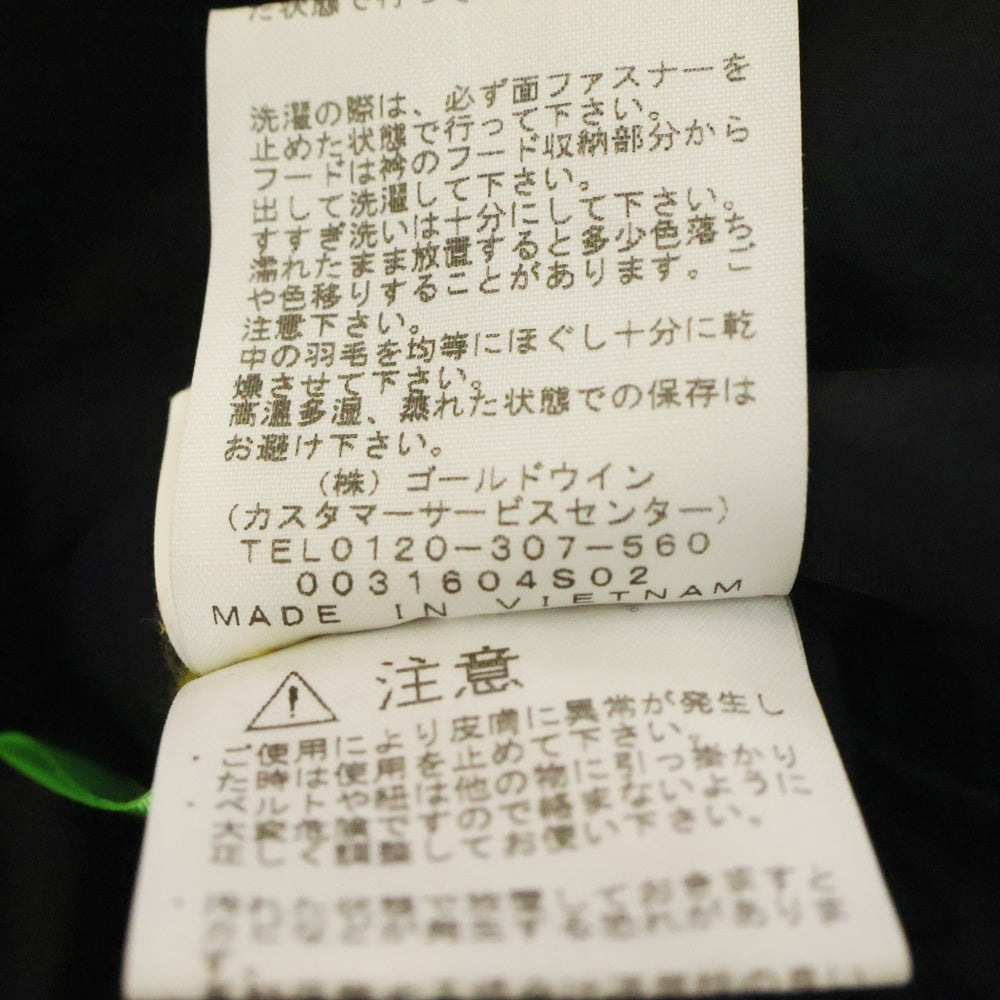 た状態で行って
洗濯の際は、必ず面ファスナーを
止めた状態で行って下さい。
フードは衿のフード収納部分から
出して洗濯して下さい。
すすぎ洗いは十分にして下さい。
濡れたまま放置すると多少色落ち
や色移りすることがあります。ご
注意下さい。
中の羽毛を均等にほぐし十分に乾
燥させて下さい。
高温多湿、蒸れた状態での保存は
お避け下さい。
(株)ゴールドウイン
(カスタマーサービスセンター)
TEL0120-307-560
0031604S02
MADE IN VIETNAM
注意
・ご使用により皮膚に異常が発生し
た時は使用を止めて下さい。
・ベルトや紐は他の物に引っ掛かり
大変危険ですので絡まないように
正しく調整してお使い下さい。
しておきますと
する恐れがありま
す。